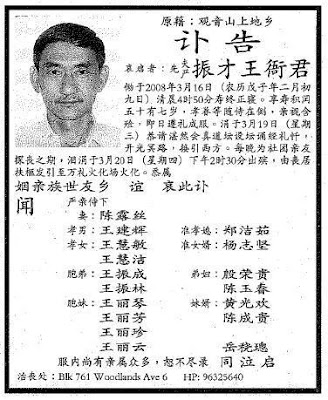 原籍：观音山上地乡
讣告
哀启者：先夫严 振才王衙君
恸于2008年3月16日（农历戊子年二月初
九日）清晨4时50分寿终正寝。享寿积闰
五十有七岁，孝眷等随侍在侧，亲视含
殓，即日遵礼成服。涓于3月19日（星期
三）恭请湛然会真道坛设坛诵经礼忏，
开光冥路，接引西方。每晚为社团亲友
探丧之期，泪涓于3月20日（星期四）下午2时30分出殡，由丧居
扶柩发引至万礼火化场火化。忝属
姻亲族世友乡 谊 哀此讣
闻
严亲侍下
妻：陈露丝
孝男：王建辉 准孝媳：郑洁茹
孝女：王慧敏 准女婿：杨志坚
王慧洁
胞弟：王振成 弟妇：殷荣贵
王振林 陈玉春
胞妹：王丽琴 妹婿：黄光欢
王丽芳 陈成贵
王丽珍
王丽云 岳桡璁
服内尚有亲属众多，恕不尽录 同泣启
治丧处：Blk 761 Woodlands Ave 6 HP: 96325640